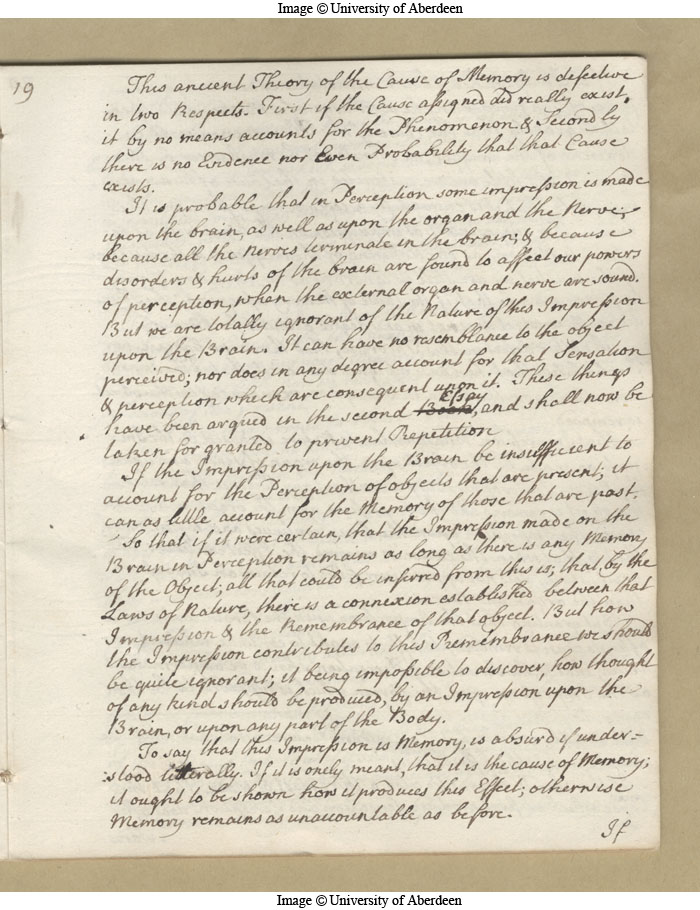 Image © University of Aberdeen
19
This ancient Theory of the Cause of Memory is defective
in two Respects. First if the Cause assigned did really exist,
it by no means accounts for the Phenomenon & Secondly
there is no Evidence nor Even Probability that that Cause
exists.
It is probable that in Perception some impression is made
upon the brain, as well as upon the organ and the Nerve;
because all the nerves terminate in the brain; & because
disorders & hurts of the brain are found to affect our powers
of perception, when the external organ and nerve are sound.
But we are totally ignorant of the Nature of this Impression
upon the Brain. It can have no resemblance to the object
perceived; nor does in any degree account for that Sensation
& perception which are consequent upon it. These things
Essay
have been argued in the second Book, and shall now be
taken for granted to prevent Repetition
If the Impression upon the Brain be insufficient to
account for the Perception of objects that are present; it
can as little account for the Memory of those that are past.
So that if it were certain, that the Impression made on the
Brain in Perception remains as long as there is any Memory
of the Object; all that could be inferred from this is; that, by the
Laws of Nature, there is a connexion established between that
Impression & the Remembrance of that object. But how
the Impression contributes to this Remembrance we should
be quite ignorant; it being impossible to discover, how thought
of any kind should be produced, by an Impression upon the
Brain, or upon any part of the Body.
To say that this Impression is Memory, is absurd if under=
stood litterally. If it is onely meant, that it is the cause of Memory;
it ought to be shown how it produces this Effect; otherwise
Memory remains as unaccountable as before.
If
Image © University of Aberdeen